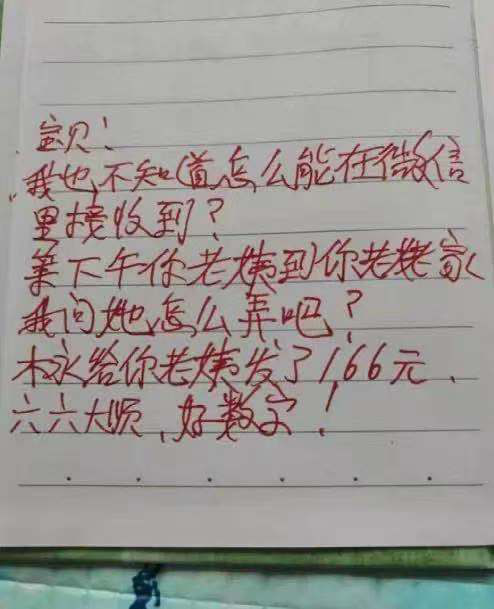 宝贝！
我也不知道怎么能在微信
里接收到？
等下午你老姨到你老姥家
我问她怎么弄吧？
木永给你老姨发了1,66元.
六六大顺,好数字！